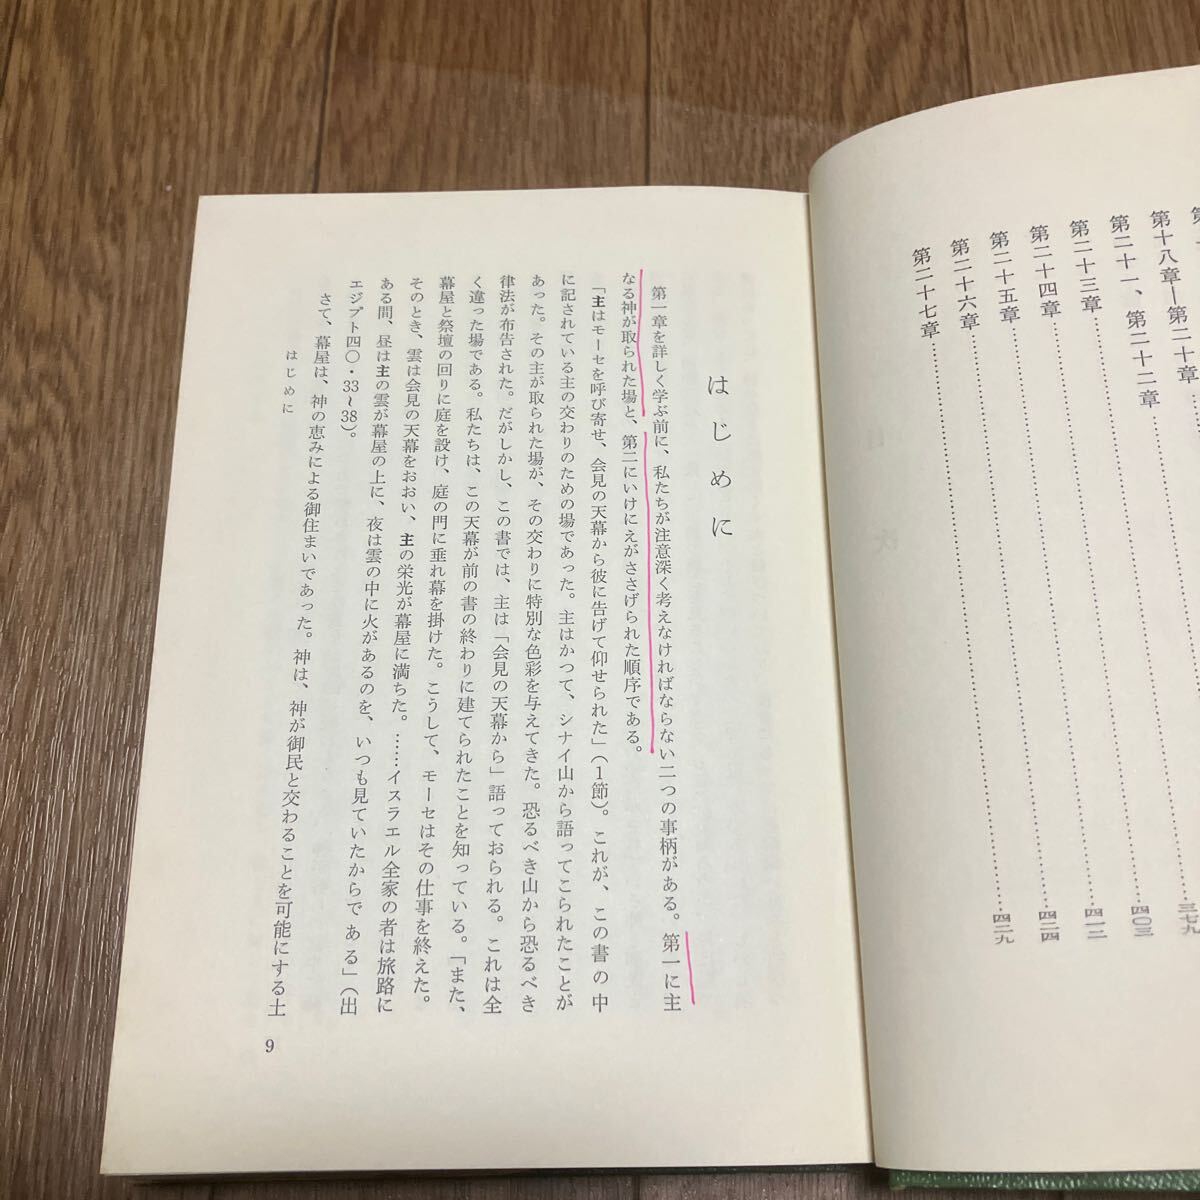 第十八章―第二十章
三七九
第二十一、第二十二章
四〇三
第二十三章
四一二
第二十四章
四二四
第二十五章
四二九
第二十六章
第二十七章
はじめに
第一章を詳しく学ぶ前に、私たちが注意深く考えなければならない二つの事柄がある。第一に主
なる神が取られた場と、第二にいけにえがささげられた順序である。
「主はモーセを呼び寄せ、会見の天幕から彼に告げて仰せられた」(1節)。これが、この書の中
に記されている主の交わりのための場であった。主はかつて、シナイ山から語ってこられたことが
あった。その主が取られた場が、その交わりに特別な色彩を与えてきた。恐るべき山から恐るべき
律法が布告された。だがしかし、この書では、主は「会見の天幕から」語っておられる。これは全
く違った場である。私たちは、この天幕が前の書の終わりに建てられたことを知っている。「また、
幕屋と祭壇の回りに庭を設け、庭の門に垂れ幕を掛けた。こうして、モーセはその仕事を終えた。
そのとき、雲は会見の天幕をおおい、主の栄光が幕屋に満ちた。……イスラエル全家の者は旅路に
ある間、昼は主の雲が幕屋の上に、夜は雲の中に火があるのを、いつも見ていたからである」(出
エジプト四〇・33~38)。
さて、幕屋は、神の恵みによる御住まいであった。神は、神が御民と交わることを可能にする土
はじめに
9